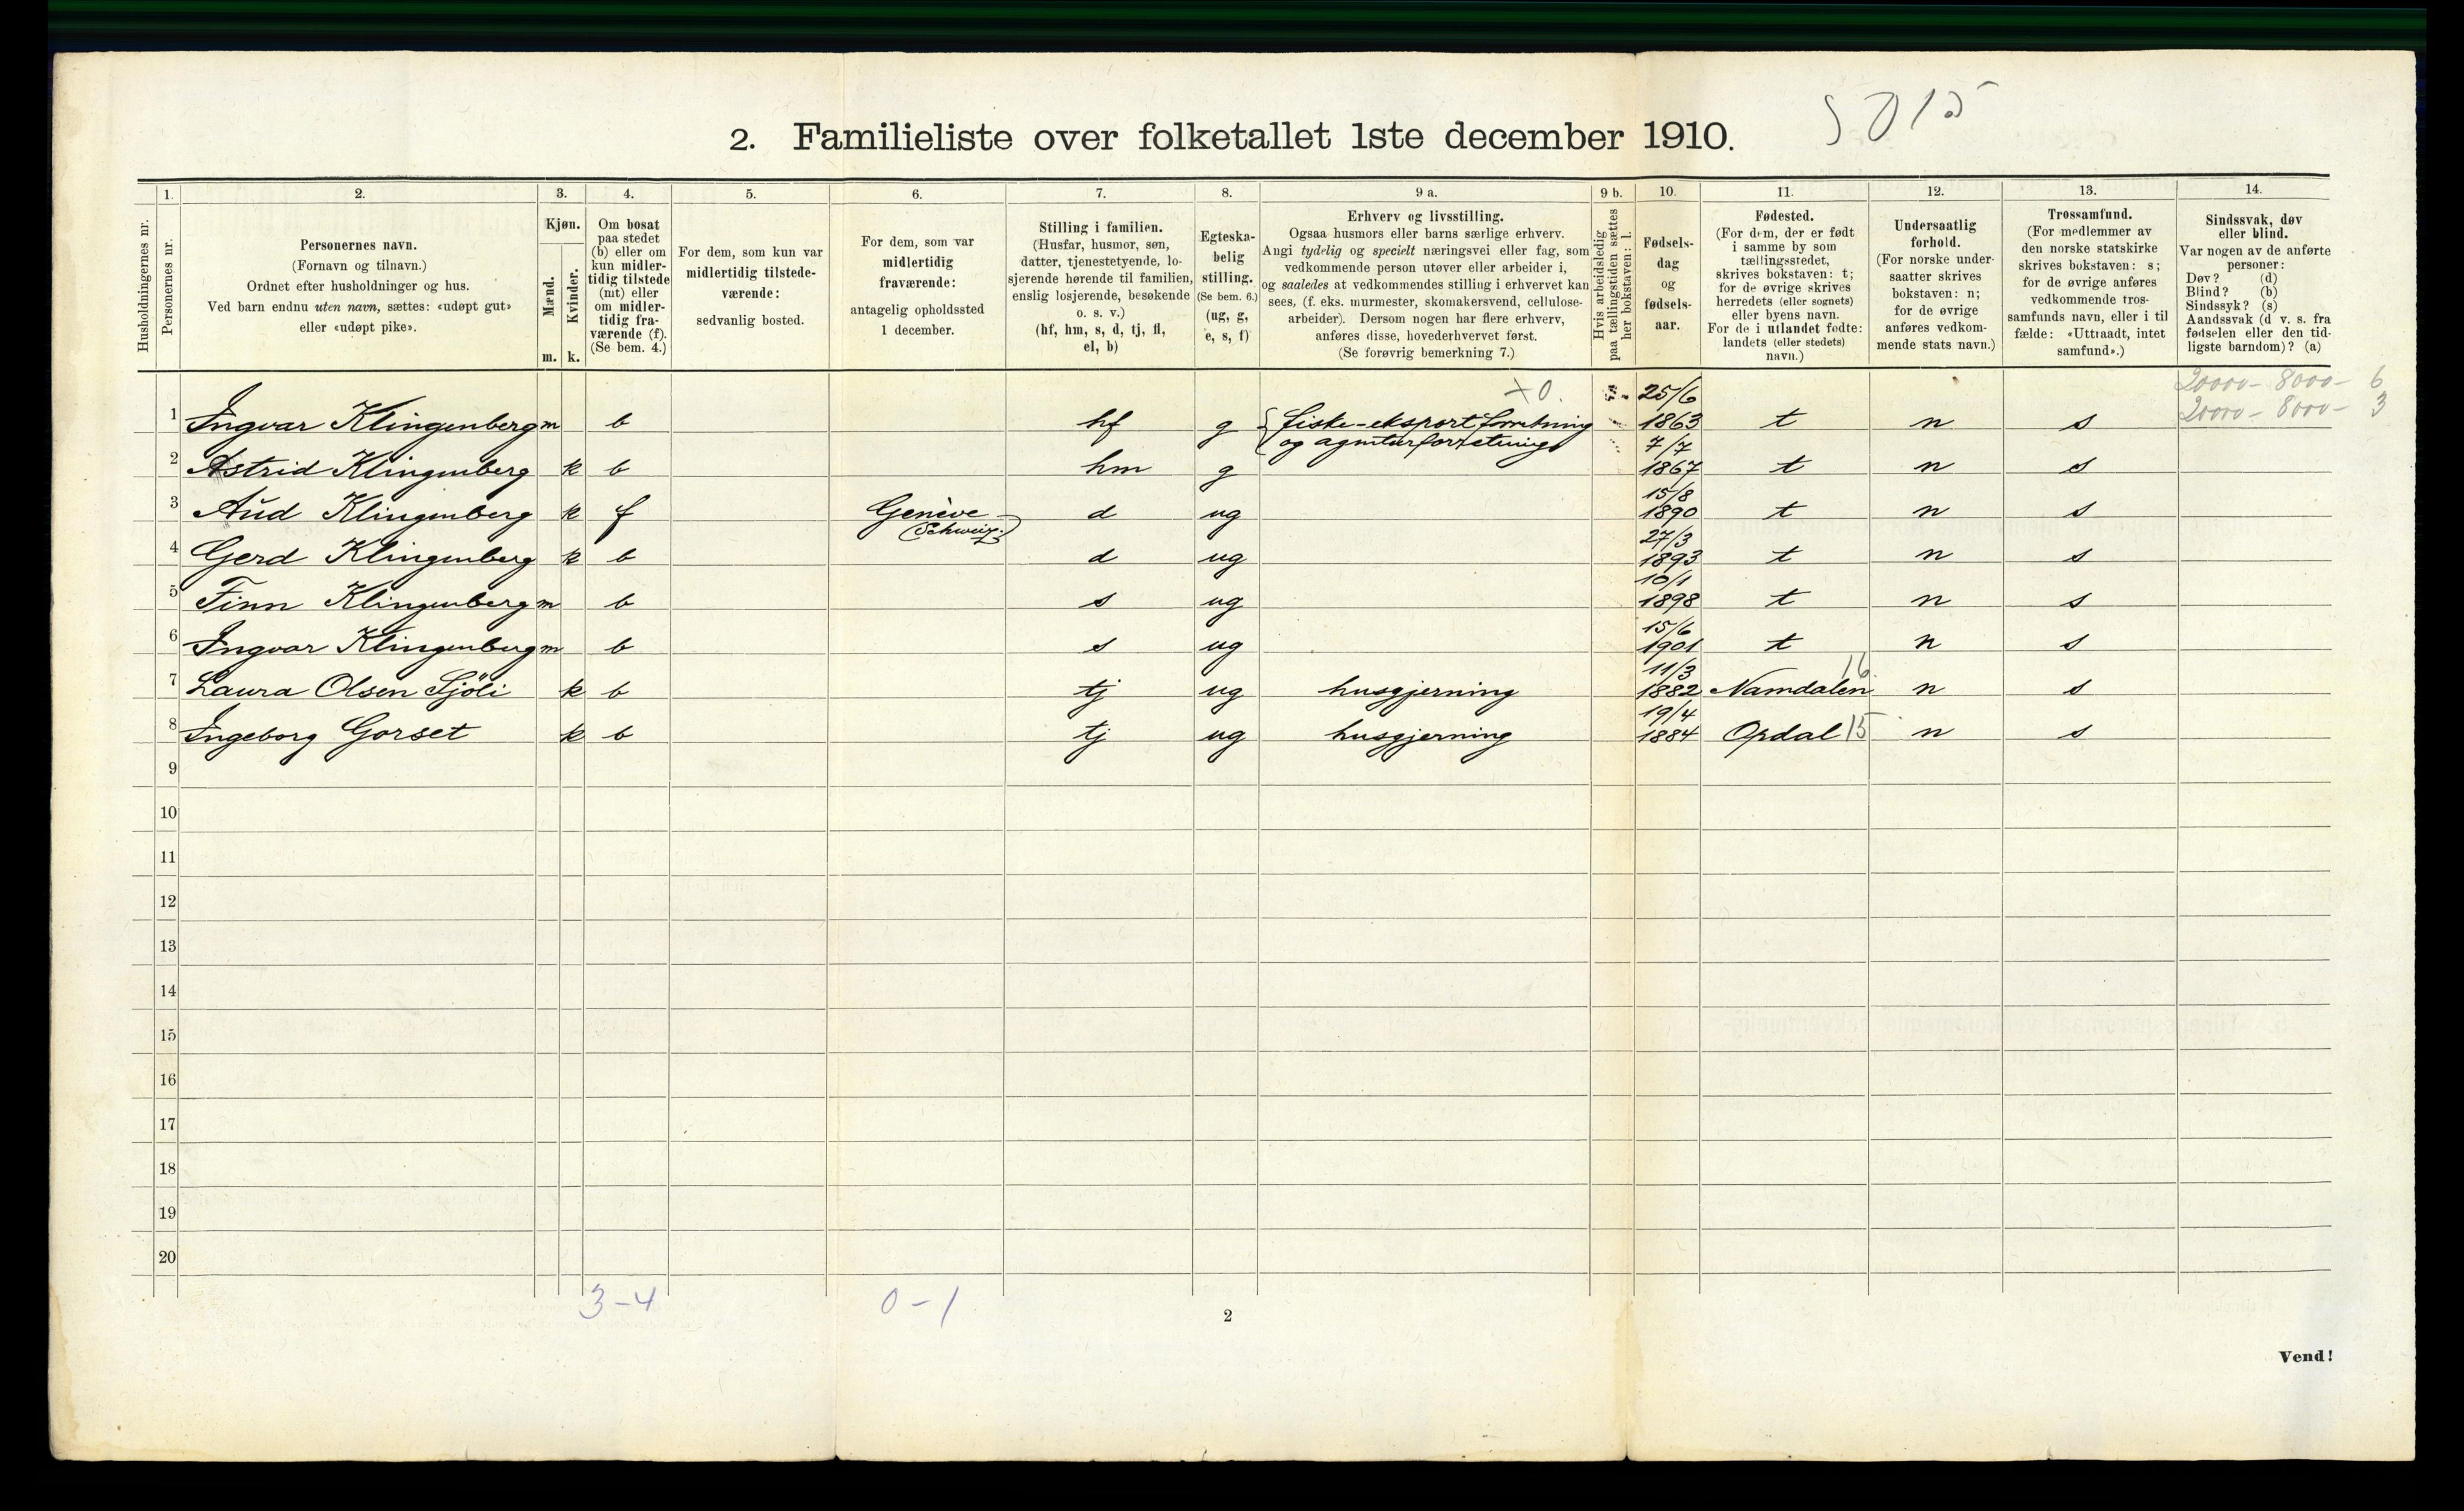 5015
2. Familieliste over folketallet 1ste december 1910.
Husholdningernes nr.
1. Personernes nr.
2. Personernes navn.
(Fornavn og tilnavn.)
Ordnet efter husholdninger og hus.
Ved barn endnu uten navn, sættes: «udøpt gut»
eller «udøpt pike».
3. Kjøn.
Mænd. m.
Kvinder. k.
4. Om bosat
paa stedet
(b) eller om
kun midler-
tidig tilstede
(mt) eller
om midler-
tidig fra-
værende (f).
(Se bem. 4.)
5. For dem, som kun var
midlertidig tilstede-
værende:
sedvanlig bosted.
6. For dem, som var
midlertidig
fraværende:
antagelig opholdssted
1 december.
7. Stilling i familien.
(Husfar, husmor, søn,
datter, tjenestetyende, lo-
sjerende hørende til familien,
enslig losjerende, besøkende
o. s. v.)
(hf, hm, s, d, tj, fl,
el, b)
8. Egteska-
belig
stilling.
(Se bem. 6.)
(ug, g,
e, s, f)
9 a. Erhverv og livsstilling.
Ogsaa husmors eller barns særlige erhverv.
Angi tydelig og specielt næringsvei eller fag, som
vedkommende person utøver eller arbeider i,
og saaledes at vedkommendes stilling i erhvervet kan
sees, (f. eks. murmester, skomakersvend, cellulose-
arbeider). Dersom nogen har flere erhverv,
anføres disse, hovederhvervet først.
(Se forøvrig bemerkning 7.)
9 b. Hvis arbeidsledig
paa tællingstiden sættes
her bokstaven: l.
10. Fødsels-
dag
og
fødsels-
aar.
11. Fødested.
(For dem, der er født
i samme by som
tællingsstedet,
skrives bokstaven: t;
for de øvrige skrives
herredets (eller sognets)
eller byens navn.
For de i utlandet fødte:
landets (eller stedets)
navn.)
12. Undersaatlig
forhold.
(For norske under-
saatter skrives
bokstaven: n;
for de øvrige
anføres vedkom-
mende stats navn.)
13. Trossamfund.
(For medlemmer av
den norske statskirke
skrives bokstaven: s;
for de øvrige anføres
vedkommende tros-
samfunds navn, eller i til
fælde: «Uttraadt, intet
samfund».)
14. Sindssvak, døv
eller blind.
Var nogen av de anførte
personer:
Døv? (d)
Blind? (b)
Sindssyk? (s)
Aandssvak (d v. s. fra
fødselen eller den tid-
ligste barndom)? (a)
+0. 25/6 20000 - 8000 - 6
1 Ingvar Klingenberg m b hf g fiske-eksportforretning 1863 t n s 20000 - 8000 - 3
og agenturforretning 7/7
2 Astrid Klingenberg k b hm g 1867 t n s
15/8
3 Aud Klingenberg k f Genève d ug 1890 t n s
(Schweiz) 27/3
4 Gerd Klingenberg k b d ug 1893 t n s
10/1
5 Finn Klingenberg m b s ug 1898 t n s
15/6
6 Ingvar Klingenberg m b s ug 1901 t n s
11/3 16
7 Laura Olsen Sjöli k b tj ug husgjerning 1882 Namdalen n s
19/4
8 Ingeborg Gorset k b tj ug husgjerning 1884 Opdal 15 n s
9
10
11
12
13
14
15
16
17
18
19
20
3-4 0-1
2
Vend!